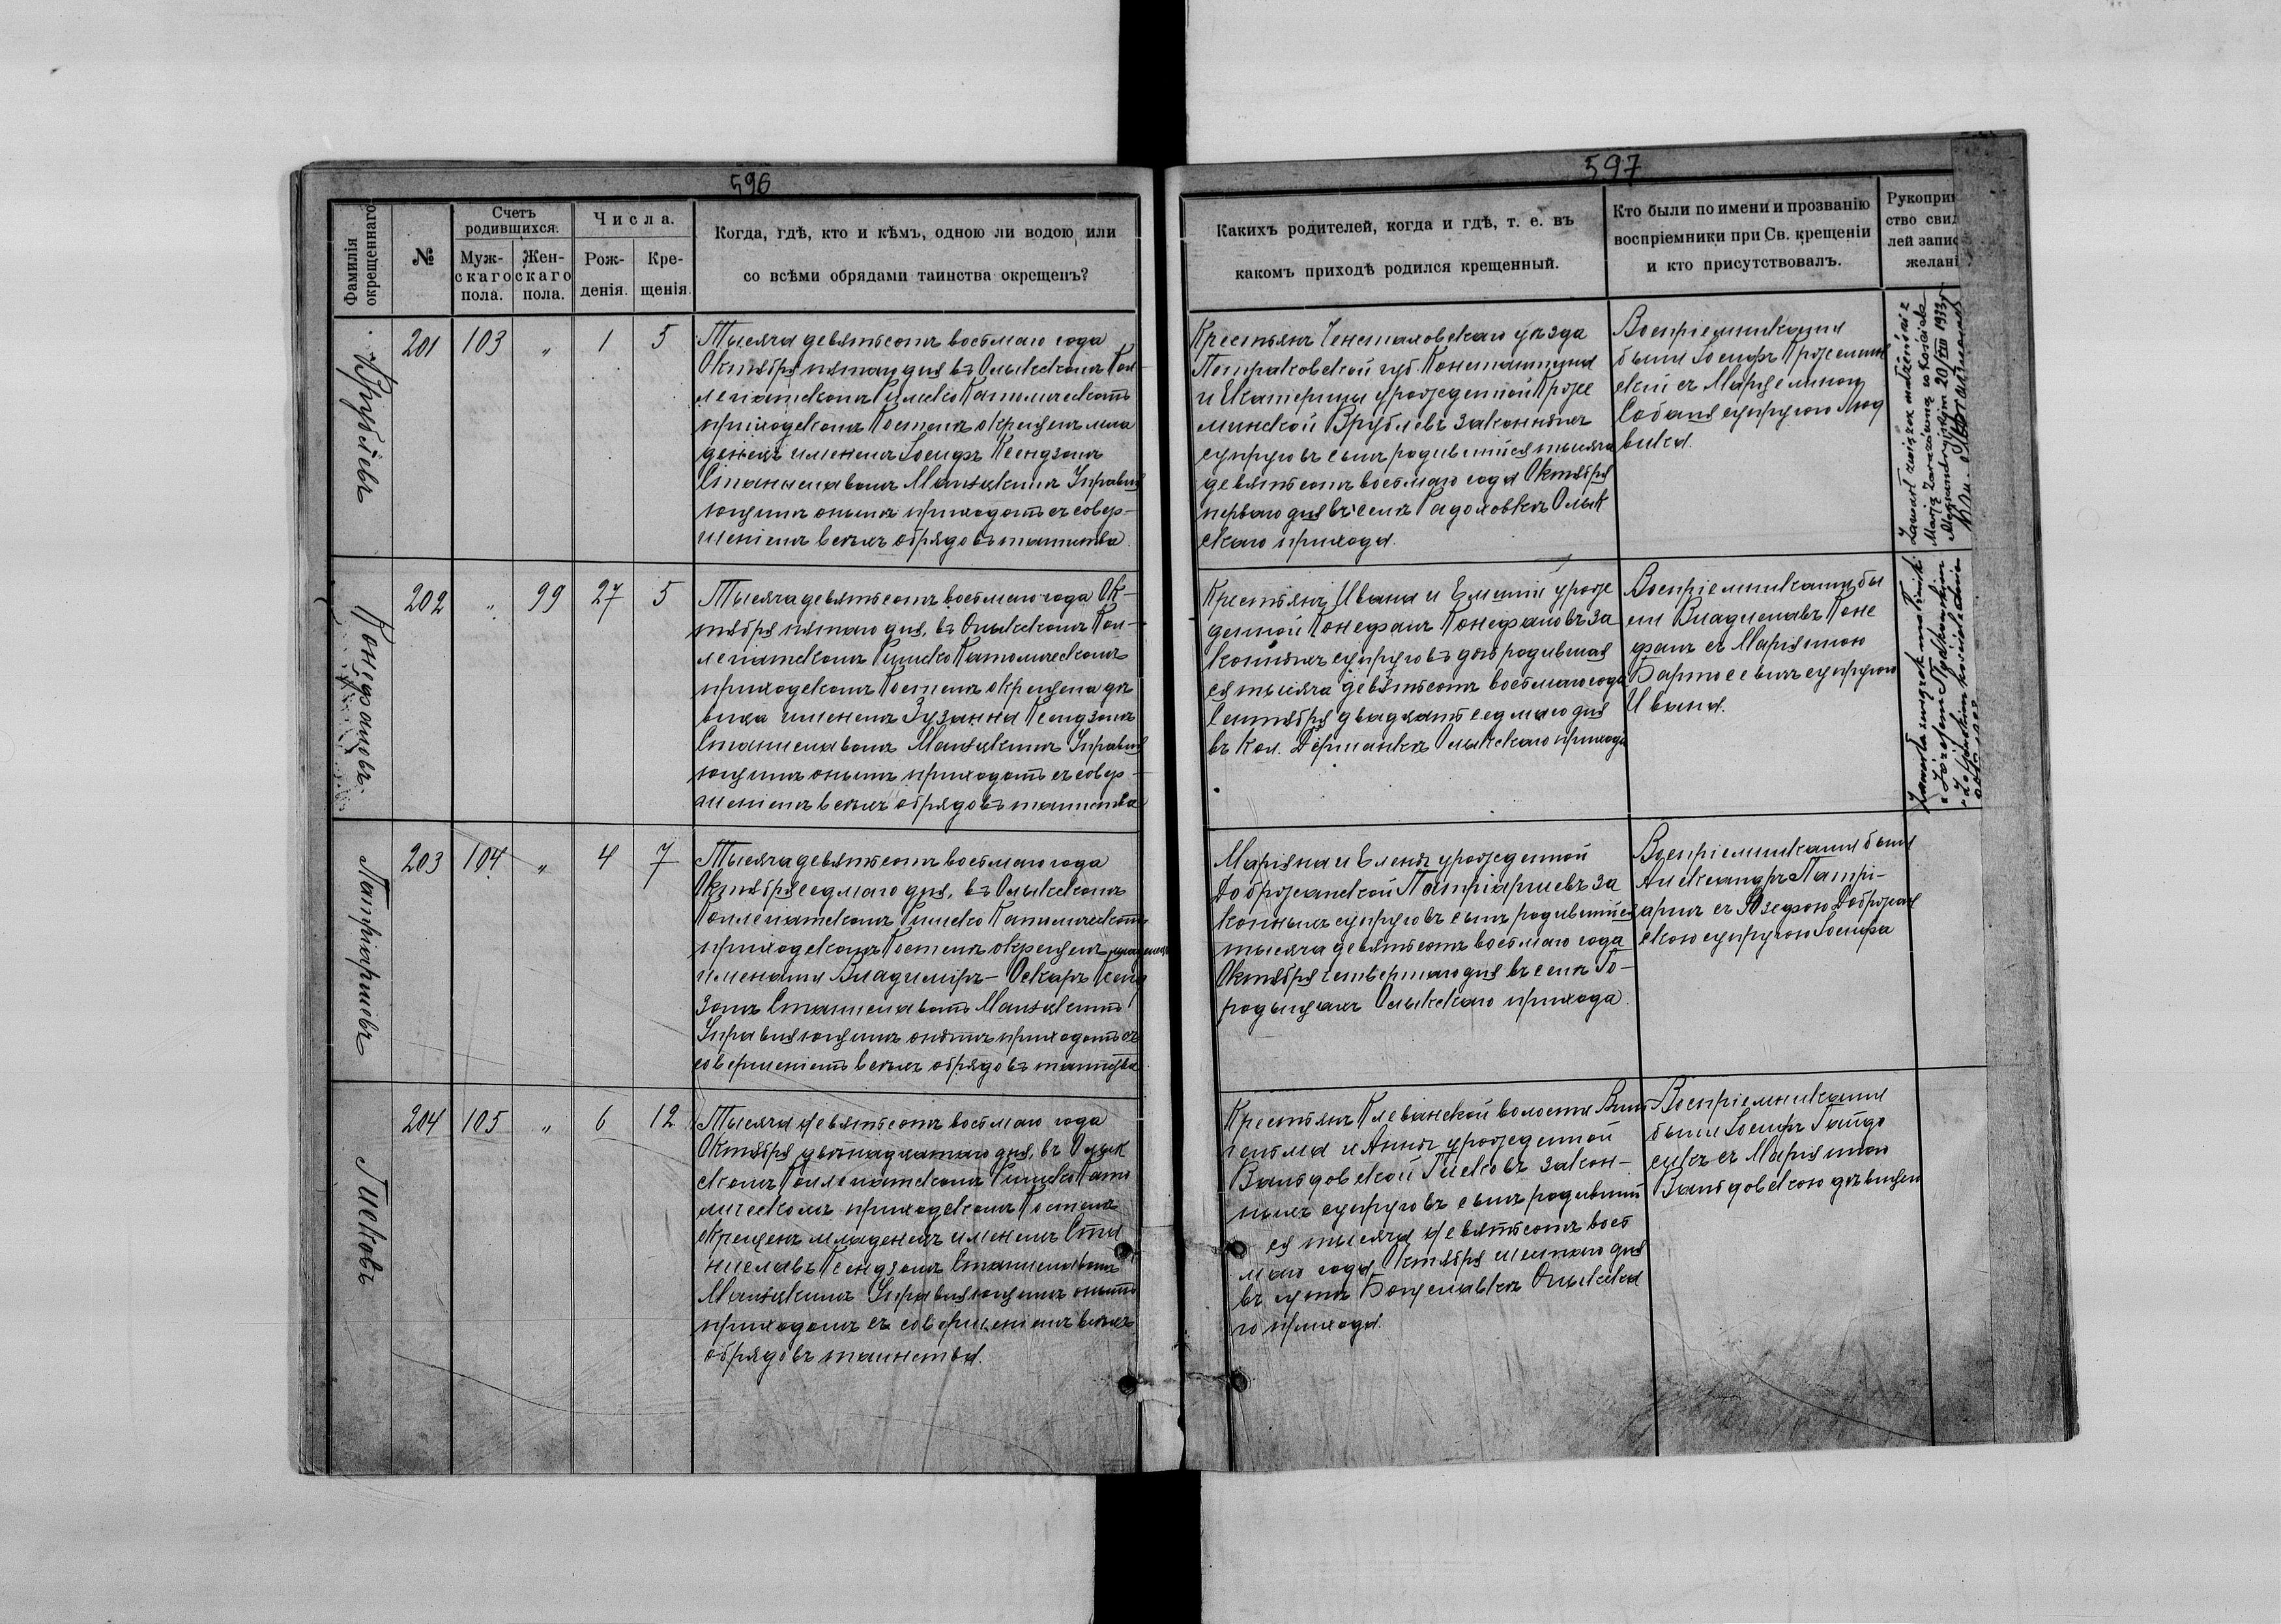 596
Фамилія
окрещеннаго
№
Счетъ
родившихся.
Муж-
скаго
пола.
Жен-
скаго
пола.
Числа.
Рож-
денія.
Кре-
щенія.
Когда, гдѣ, кто и кѣмъ, одною ли водою, или
со всѣми обрядами таинства окрещенъ?
Врублевъ
201 103 " 1 5
Тысяча девятьсотъ восьмаго года
Октября пятаго дня въ Олыкскомъ Кол-
легіатскомъ Римско Католическомъ
приходскомъ Костелѣ окрещенъ мла
денецъ именемъ Іосифъ Ксендзомъ
Станиславомъ Управля
ющимъ онымъ приходомъ съ совер-
шеніемъ всѣхъ обрядовъ таинства.
Конефаловъ.
202 " 99 27 5
Тысяча девятьсотъ восьмаго года Ок-
тября пятаго дня, въ Олыкскомъ Кол-
легіатскомъ Римско Католическомъ
приходскомъ Костелѣ окрещена дѣ
вица именемъ Зузанна Ксендзомъ
Станиславомъ Управля
ющимъ онымъ приходомъ съ совер-
шеніемъ всѣхъ обрядовъ таинства
Патріаршевъ
203 104 " 4 7
Тысяча девятьсотъ восьмаго года
Октября седмаго дня, въ Олыкскомъ
Коллегіатскомъ Римско Католическомъ
приходскомъ Костелѣ окрещенъ младенецъ
именами Владиміръ-Оскаръ Ксенд
зомъ Станиславомъ
Управляющимъ онымъ приходомъ съ
совершеніемъ всѣхъ обрядовъ таинства
Гисковъ
204 105 " 6 12
Тысяча девятьсотъ восьмаго года
Октября двѣнадцатаго дня, въ Олык
скомъ Коллегіатскомъ Римско Като
лическомъ приходскомъ Костелѣ
окрещенъ младенецъ именемъ Ста
ниславъ Ксендзомъ Станиславомъ
Управляющимъ онымъ
приходомъ съ совершеніемъ всѣхъ
обрядовъ таинства.
597
Какихъ родителей, когда и гдѣ, т. е. въ
какомъ приходѣ родился крещенный.
Кто были по имени и прозванію
воспріемники при Св. крещеніи
и кто присутствовалъ.
Рукоприк
ство свид
лей запис
желані
Крестьянъ Ченстаховскаго уѣзда
Петраковской губ. Константина
и Екатерины урожденной Кроже
минской Врублевъ законныхъ
супруговъ сынъ родившійся тысяча
девятьсотъ восьмаго года Октября
перваго дня въ селѣ Олык
скаго прихода.
Воспріемниками
были Іосифъ Кржемин
скій съ Марцелиною
Собаня супругою Люд
вика.
Zawarł związek małżeński z
Marją w Kościele
20/VIII 1933 r.
Крестьянъ Ивана и Емиліи урож
денной Конефалъ Конефаловъ за
конныхъ супруговъ дочь родившая
ся тысяча девятьсотъ восьмаго года
Сентября двадцать седмаго дня
въ кол. Дерманкѣ Олыкскаго прихода
Воспріемниками бы
ли Владиславъ Коне
фалъ съ Маріянною
супругою
Ивана.
Zawarła związek małżeński
z Józefem
Маріяна и Елены урожденной
Доброжанской Патріаршевъ за
конныхъ супруговъ сынъ родившійся
тысяча девятьсотъ восьмаго года
Октября четвертаго дня въ селѣ Го-
родищахъ Олыкскаго прихода.
Воспріемниками были
Александръ Патрі-
архъ съ Юзефою Доброжан
скою супругою Іосифа
Крестьянъ Клеванской волости Виль
гельма и Анны урожденной
Вальдовской Гисковъ закон-
ныхъ супруговъ сынъ родившій
ся тысяча девятьсотъ вось
маго года Октября шестаго дня
въ Богуславкѣ Олыкска
го прихода.
Воспріемниками
были Іосифъ Гайдо
съ Маріянною
Вальдовскою дѣвицею